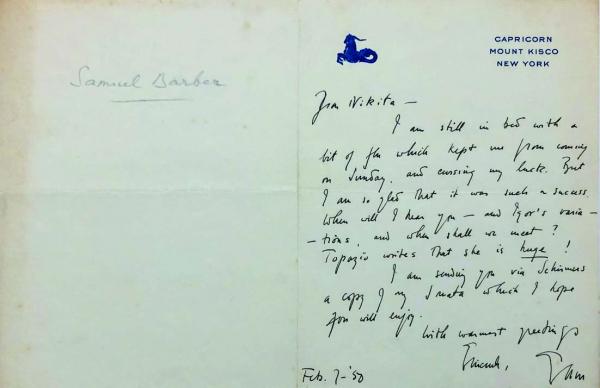 Samuel Barber
CAPRICORN
MOUNT KISCO
NEW YORK
Dear Nikita —
I am still in bed with a
bit of flu which kept me from coming
on Sunday, and cursing my luck. But
I am so glad that it was such a success.
When will I hear you — and Igor's varia-
-tions, and when shall we meet?
writes that she is huge!
I am sending you via Schirmers
a copy of my Sonata which I hope
you will enjoy.
With warmest greetings
Sincerely,
Sam
Feb. 7-'50